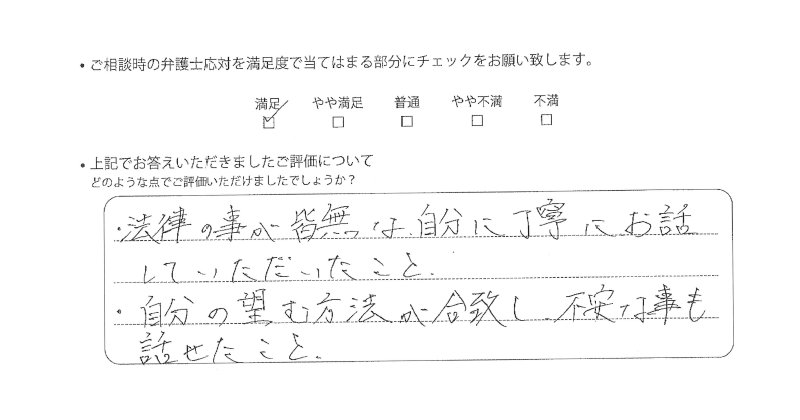 • ご相談時の弁護士応対を満足度で当てはまる部分にチェックをお願い致します。
満足 やや満足 普通 やや不満 不満
☑ □ □ □ □
• 上記でお答えいただきましたご評価について
どのような点でご評価いただけましたでしょうか？
・法律の事が皆無な、自分に丁寧にお話
していただいたこと。
・自分の望む方法が合致し、不安な事も
話せたこと。